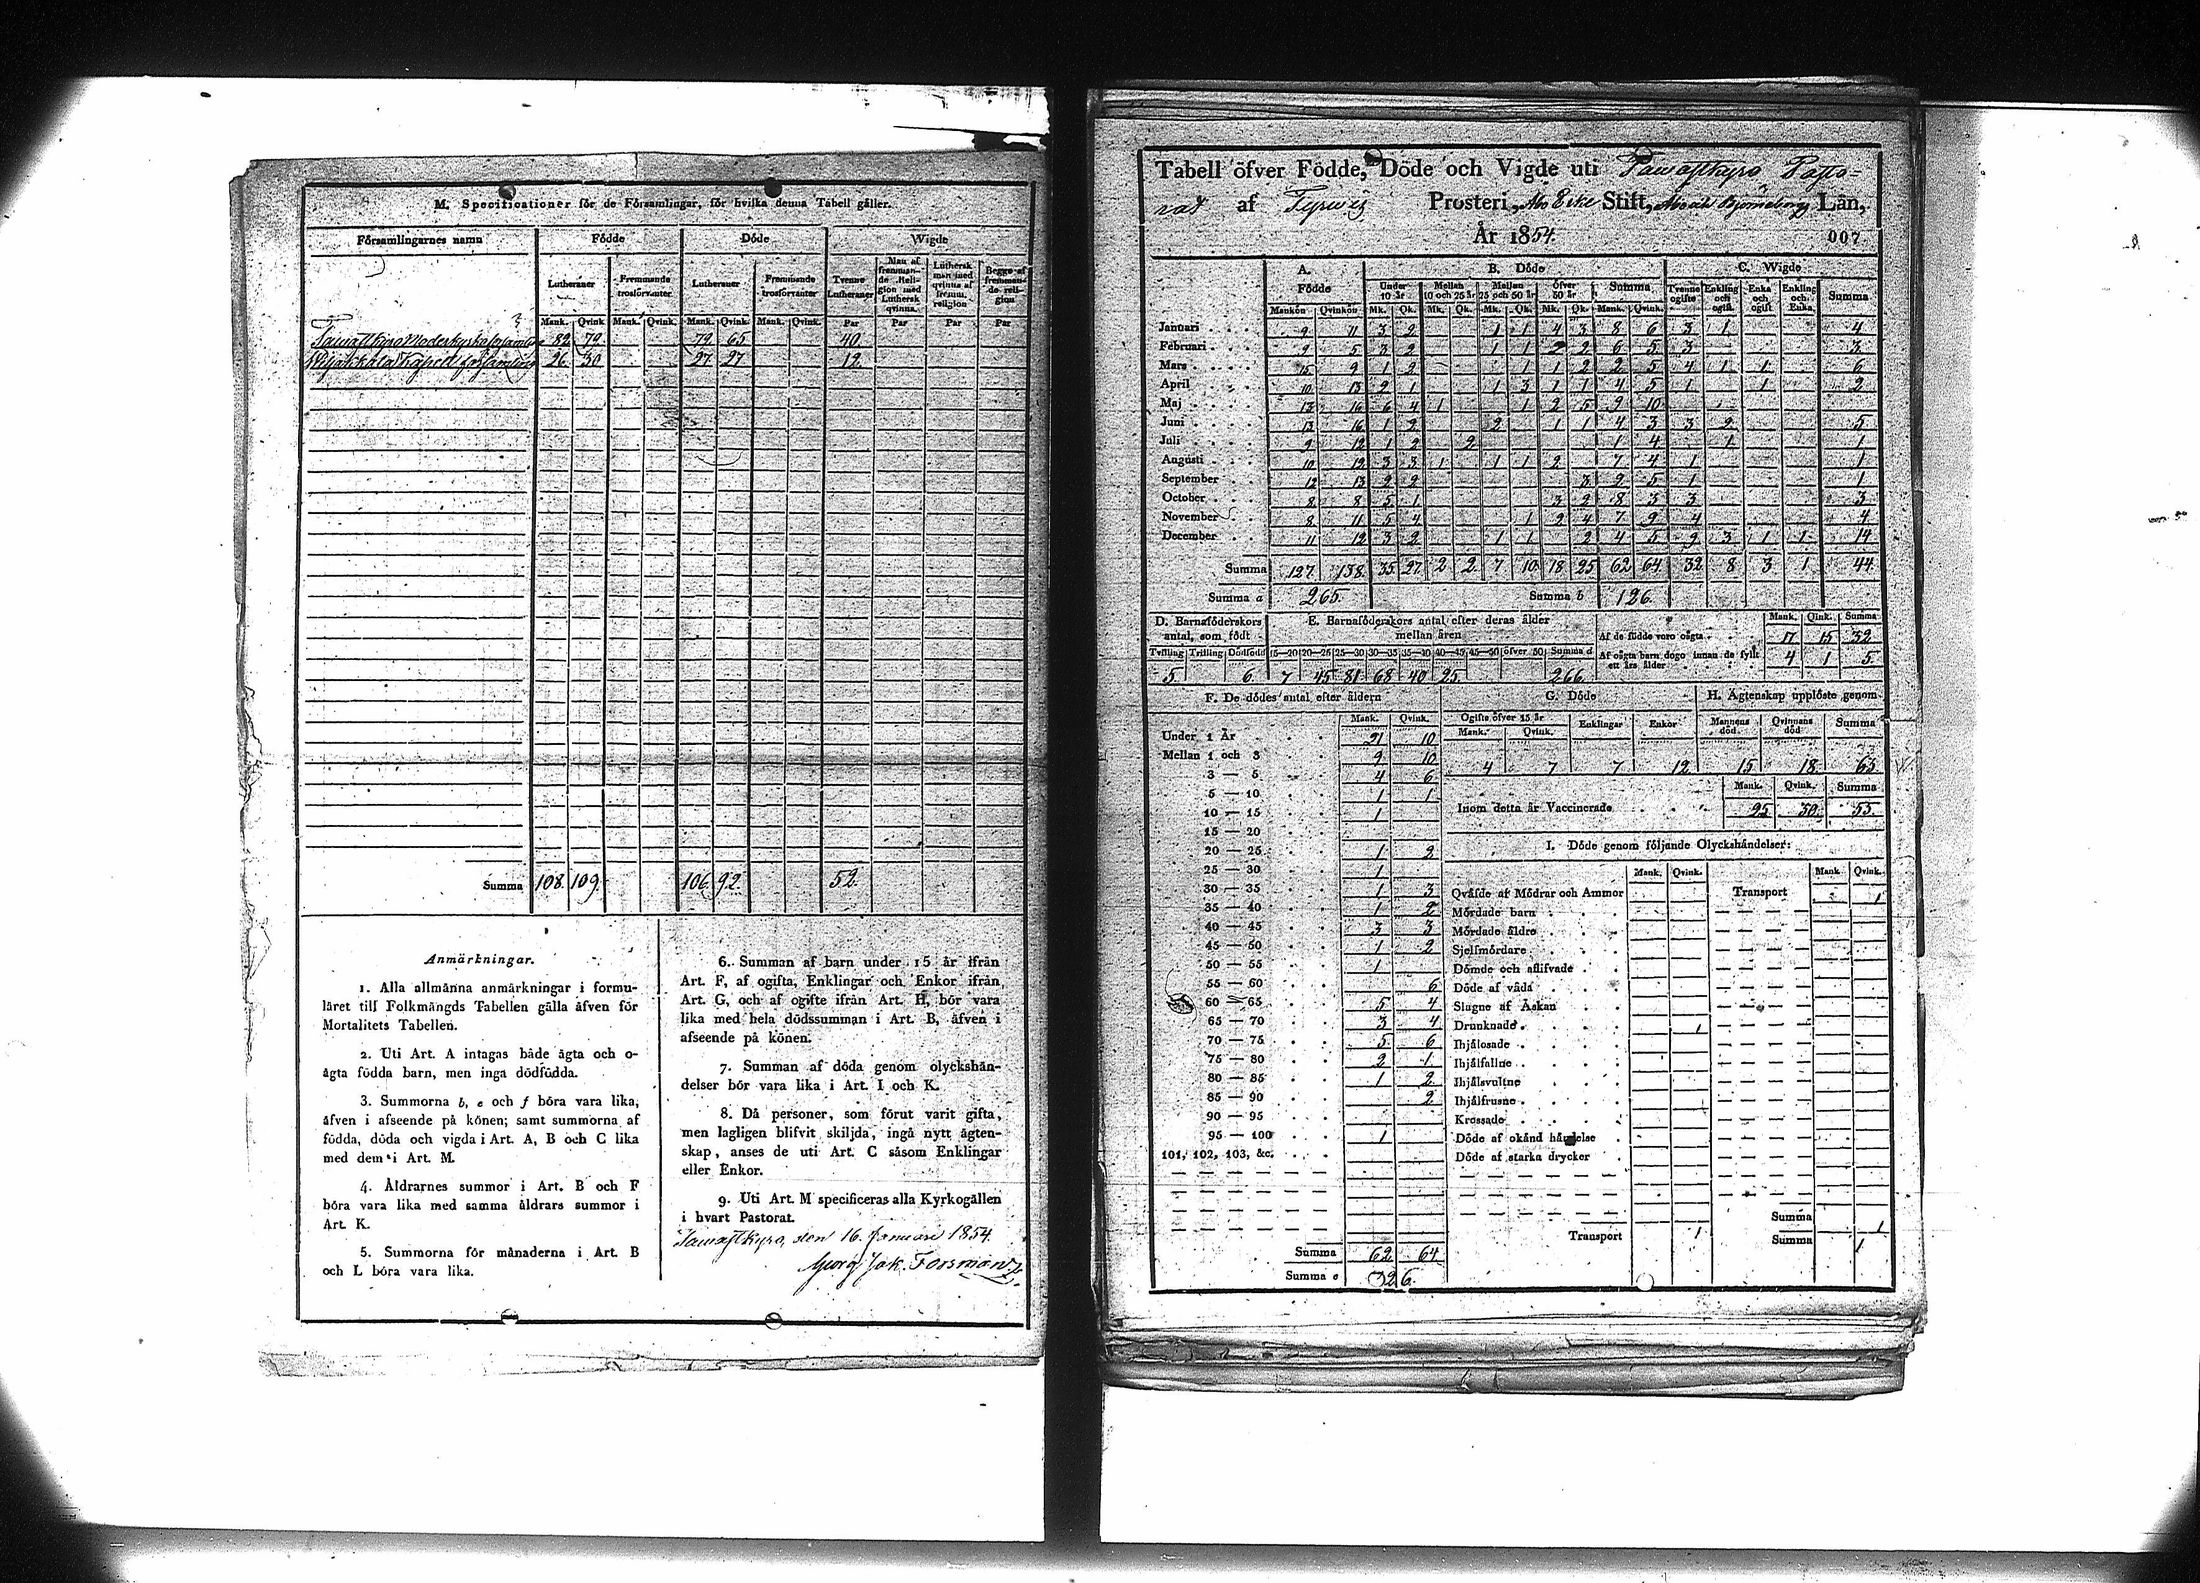 M. Specificationer för de Församlingar, för hvilka denna Tabell gäller.
Församlingarnes namn Födde Döde Wigde
Lutheraner Fremmande trosförvanter Lutheraner Fremmande trosförvanter Tvenne Lutheraner Man af fremmande Religion med Luthersk qvinna. Luthersk man med qvinna af fremm. religion Begge af fremmande religion
Mank. Qvink. Mank. Qvink. Mank. Qvink. Mank. Qvink. Par Par Par Par
Tawastkyro Moderkyrkoförsamling 82 79 79 65 40
Kapell församling 26 30 27 27 12
Summa 108 109 106 92 52
Anmärkningar.
1. Alla allmänna anmärkningar i formu-
läret till Folkmängds Tabellen gälla äfven för
Mortalitets Tabellen.
2. Uti Art. A intagas både ägta och o-
ägta födda barn, men inga dödfödda.
3. Summorna b, e och f böra vara lika,
äfven i afseende på könen; samt summorna af
födda, döda och vigda i Art. A, B och C lika
med dem i Art. M.
4. Åldrarnes summor i Art. B och F
böra vara lika med samma åldrars summor i
Art. K.
5. Summorna för månaderna i Art. B
och L böra vara lika.
6. Summan af barn under 15 år ifrån
Art. F, af ogifta, Enklingar och Enkor ifrån
Art. G, och af ogifte ifrån Art. H, bör vara
lika med hela dödssumman i Art. B, äfven i
afseende på könen.
7. Summan af döda genom olyckshän-
delser bör vara lika i Art. I och K.
8. Då personer, som förut varit gifta,
men lagligen blifvit skiljda, ingå nytt ägten-
skap, anses de uti Art. C såsom Enklingar
eller Enkor.
9. Uti Art. M specificeras alla Kyrkogällen
i hvart Pastorat.
Tawastkyro, den 16. Januari 1854.
Georg Jak. Forsman
Tabell öfver Födde, Döde och Vigde uti Tawastkyro Pasto-
rat af Tyrwis Prosteri, Åbo Erke Stift, Åbo och Björneborgs Län,
År 1854. 007
A. Födde B. Döde C. Wigde
Under 10 år Mellan 10 och 25 år Mellan 25 och 50 år Öfver 50 år Summa Tvenne ogifte Enkling och ogift Enka och ogift Enkling och Enka Summa
Mankön Qvinkön Mk. Qk. Mk. Qk. Mk. Qk. Mk. Qk. Mank. Qvink.
Januari 9 11 3 2 1 1 4 3 8 6 3 1 4
Februari 9 5 3 2 1 1 2 2 6 5 3 3
Mars 15 9 1 2 1 1 2 2 5 4 1 1 6
April 10 13 2 1 1 3 1 1 4 5 1 1 2
Maj 13 16 6 4 1 1 2 5 9 10
Juni 13 16 1 2 2 1 1 4 3 3 2 5
Juli 9 12 1 2 2 1 4 1 1
Augusti 10 12 3 3 1 1 1 2 7 4 1 1
September 12 13 2 2 3 2 5 1 1
October 8 8 5 1 3 2 8 3 3 3
November 8 11 5 4 1 2 4 7 9 4 4
December 11 12 3 2 1 1 2 4 5 9 3 1 1 14
Summa 127 138 35 27 2 2 7 10 18 25 62 64 32 8 3 1 44
Summa a 265 Summa b 126
D. Barnaföderskors antal, som födt E. Barnaföderskors antal efter deras ålder mellan åren Mank. Qink. Summa
Af de födde voro oägta 17 15 32
Tvilling Trilling Dödfödd 15—20 20—25 25—30 30—35 35—40 40—45 45—50 öfver 50 Summa d
Af oägta barn dogo innan de fyllt ett års ålder 4 1 5
5 6 7 45 81 68 40 25 266
F. De dödes antal efter åldern
Mank. Qvink.
Under 1 År 21 10
Mellan 1 och 3 9 10
3 — 5 4 6
5 — 10 1 1
10 — 15 1
15 — 20
20 — 25 1 2
25 — 30 1
30 — 35 1 3
35 — 40 1 2
40 — 45 3 3
45 — 50 1 2
50 — 55 1
55 — 60 6
60 — 65 5 4
65 — 70 3 4
70 — 75 5 6
75 — 80 2 1
80 — 85 1 2
85 — 90 2
90 — 95
95 — 100 1
101, 102, 103, &c.
Summa 62 64
Summa e 326.
G. Döde H. Ägtenskap upplöste genom
Ogifte öfver 15 år Enklingar Enkor Mannens död Qvinnans död Summa
Mank. Qvink.
4 7 7 12 15 18 63
Mank. Qvink. Summa
Inom detta år Vaccinerade 25 30 55
I. Döde genom följande Olyckshändelser:
Mank. Qvink. Mank. Qvink.
Qväfde af Mödrar och Ammor Transport 1
Mördade barn
Mördade äldre
Sjelfmördare
Dömde och aflifvade
Döde af våda
Slagne af Åskan
Drunknade 1
Ihjälosade
Ihjälfallne
Ihjälsvultne
Ihjälfrusne
Krossade
Döde af okänd händelse
Döde af starka drycker
Transport 1
Summa 1
Summa 1